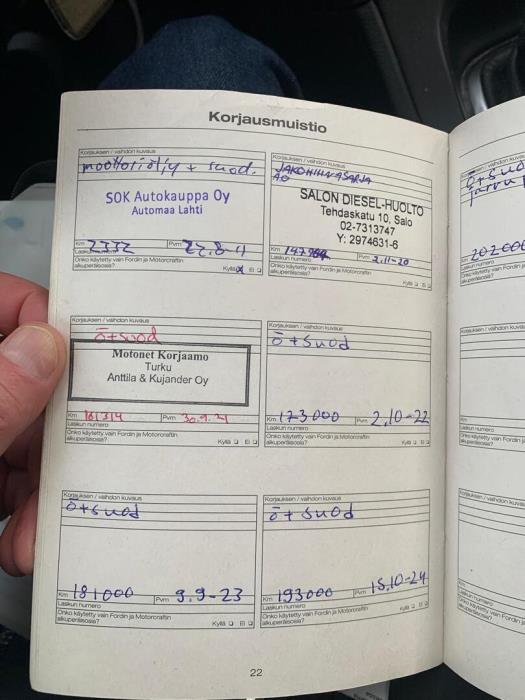 Korjausmuistio
Korjauksen / vaihdon kuvaus
moottoriöljy + suod.
SOK Autokauppa Oy
Automaa Lahti
Km 2332 Pvm 22.8-11
Laskun numero
Onko käytetty vain Fordin ja Motorcraftin
alkuperäisosia? Kyllä Ei
Korjauksen / vaihdon kuvaus
JAKOHIHNASARJA
AO
SALON DIESEL-HUOLTO
Tehdaskatu 10, Salo
02-7313747
Y: 2974631-6
Km Pvm 2.11-20
Laskun numero
Onko käytetty vain Fordin ja Motorcraftin
alkuperäisosia? Kyllä Ei
Korjauksen / vaihdon kuvaus
ö+suod
Motonet Korjaamo
Turku
Anttila & Kujander Oy
Km 161314 Pvm 30.9.21
Laskun numero
Onko käytetty vain Fordin ja Motorcraftin
alkuperäisosia? Kyllä Ei
Korjauksen / vaihdon kuvaus
ö+suod
Km 173000 Pvm 2.10-22
Laskun numero
Onko käytetty vain Fordin ja Motorcraftin
alkuperäisosia? Kyllä Ei
Korjauksen / vaihdon kuvaus
ö+suod
Km 181000 Pvm 9.9-23
Laskun numero
Onko käytetty vain Fordin ja Motorcraftin
alkuperäisosia? Kyllä Ei
Korjauksen / vaihdon kuvaus
ö+ suod
Km 193000 Pvm 15.10-24
Laskun numero
Onko käytetty vain Fordin ja Motorcraftin
alkuperäisosia? Kyllä Ei
22
Korjauksen / vaihdon
ö+suo
Km 202000
Laskun numero
Onko käytetty vain Fordin ja
alkuperäisosia?
Korjauksen / vaihdon
Km
Laskun numero
Onko käytetty vain Fordin
alkuperäisosia?
Korjauksen / vaihdon
Km
Laskun numero
Onko käytetty vain Fordin
alkuperäisosia?